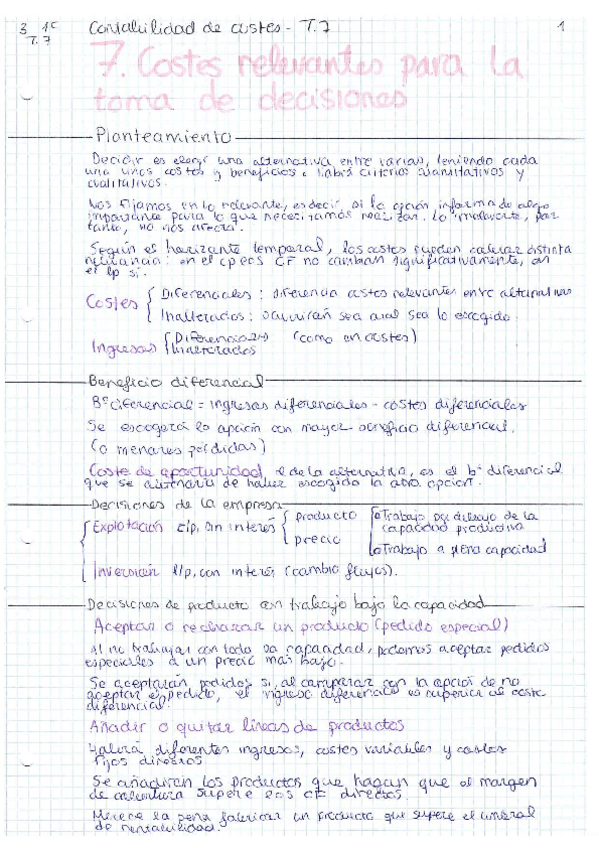 3 1C Contabilidad de costes - T.7 1
T.7
7. Costes relevantes para la
toma de decisiones
Planteamiento
Decidir es elegir una alternativa entre varias, teniendo cada
una unos costes y beneficios. Habrá criterios cuantitativos y
cualitativos.
Nos fijamos en lo relevante, es decir, si la opción informa de algo
importante para lo que necesitamos realizar. Lo irrelevante, por
tanto, no nos afecta.
Según el horizonte temporal, los costes pueden cobrar distinta
relevancia: en el cp los CF no cambian significativamente, en
el lp sí.
Costes { Diferenciales: diferencia costes relevantes entre alternativas
Inalterados: ocurrirán sea cual sea lo escogido.
Ingresos { Diferenciales (como en costes)
Inalterados
Beneficio diferencial
Bº diferencial = ingresos diferenciales - costes diferenciales
Se escogerá la opción con mayor beneficio diferencial.
(o menores pérdidas)
Coste de oportunidad el de la alternativa, es el bº diferencial
que se obtendría de haber escogido la otra opción.
Decisiones de la empresa
{ Explotación c/p, sin interés { producto { Trabajo por debajo de la
capacidad productiva
precio
Trabajo a plena capacidad
Inversión l/p, con interés (cambio flujos).
Decisiones de producto con trabajo bajo la capacidad
Aceptar o rechazar un producto (pedido especial)
Al no trabajar con toda la capacidad, podemos aceptar pedidos
especiales a un precio más bajo.
Se aceptarán pedidos si, al comparar con la opción de no
aceptar el pedido, el ingreso diferencial es superior al coste
diferencial.
Añadir o quitar líneas de productos
Habrá diferentes ingresos, costes variables y costes
fijos directos
Se añadirán los productos que hagan que el margen
de cobertura supere los CF directos.
Merece la pena fabricar un producto que supere el umbral
de rentabilidad.